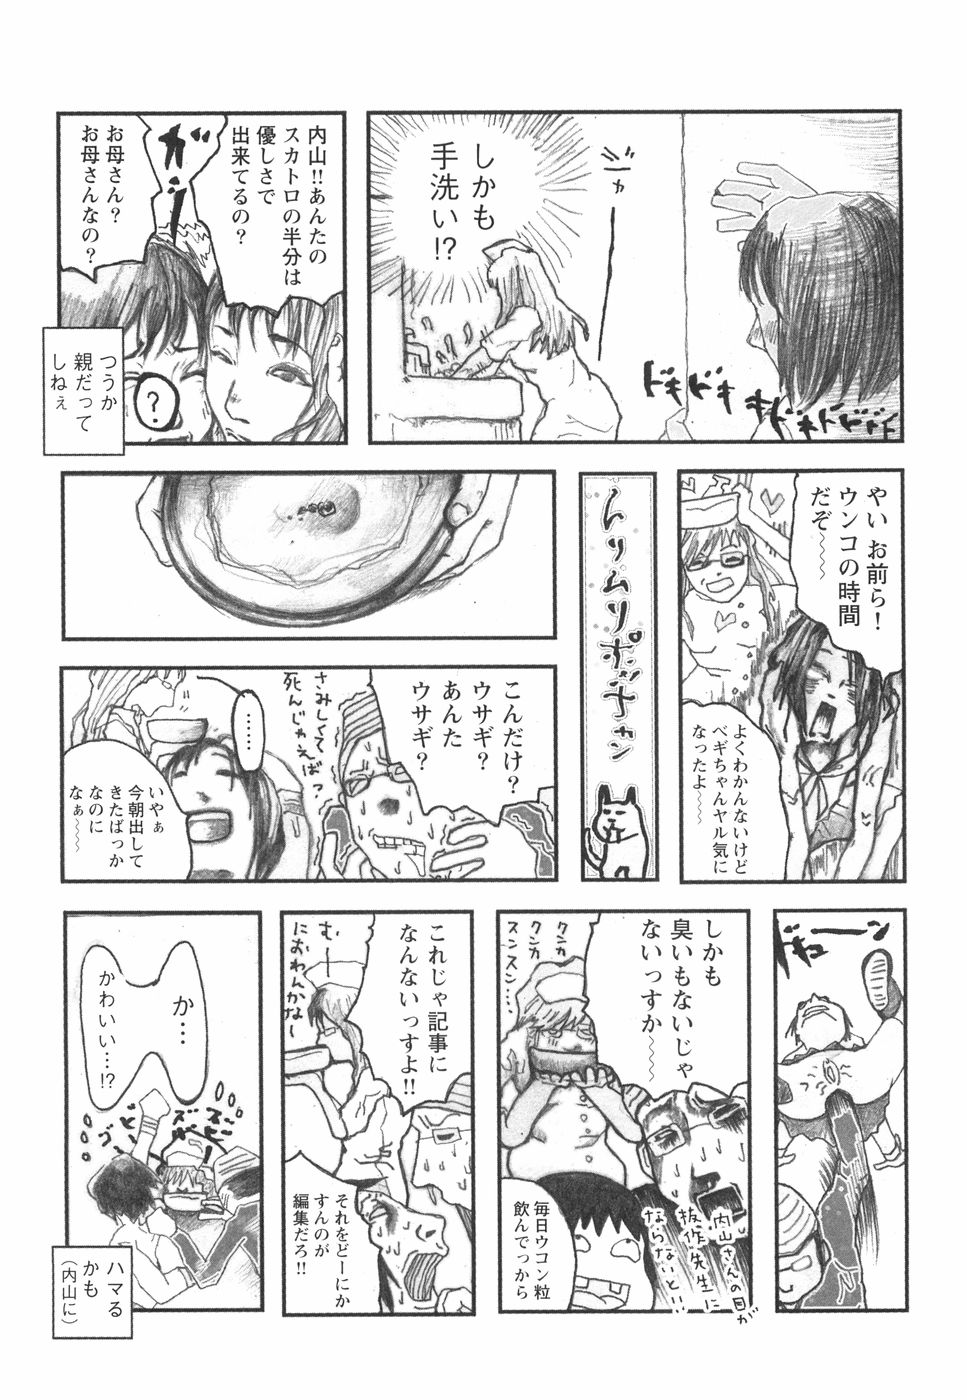 しかも
手洗い!?
ジャ
ドキドキ
ドキドキドドドド
内山!!あんたの
スカトロの半分は
優しさで
出来てるの?
ガ
お母さん?
お母さんなの?
?
つうか
親だって
しねぇ
やい お前ら!
ウンコの時間
だぞ〜〜〜
よくわかんないけど
ベギちゃんヤル気に
なったよ〜〜
んりムリポッチャン
こんだけ?
ウサギ?
あんた
ウサギ?
さみしくて
死んじゃえば?
……
いやぁ
今朝出して
きたばっか
なのに
なぁ〜〜
ドキューーン
しかも
臭いもないじゃ
ないっすか〜〜〜〜
クンカ
クンカ
スンスン…
内山さんの目が
抜作先生に
ならないと!!
毎日ウコン粒
飲んでっから
これじゃ記事に
なんないっすよ!!
むー
におわんかなー
それをどーにか
すんのが
編集だろ!!
か…
かわいい…!?
ズズー
ズビー
ゴビー
ハマる
かも
(内山に)